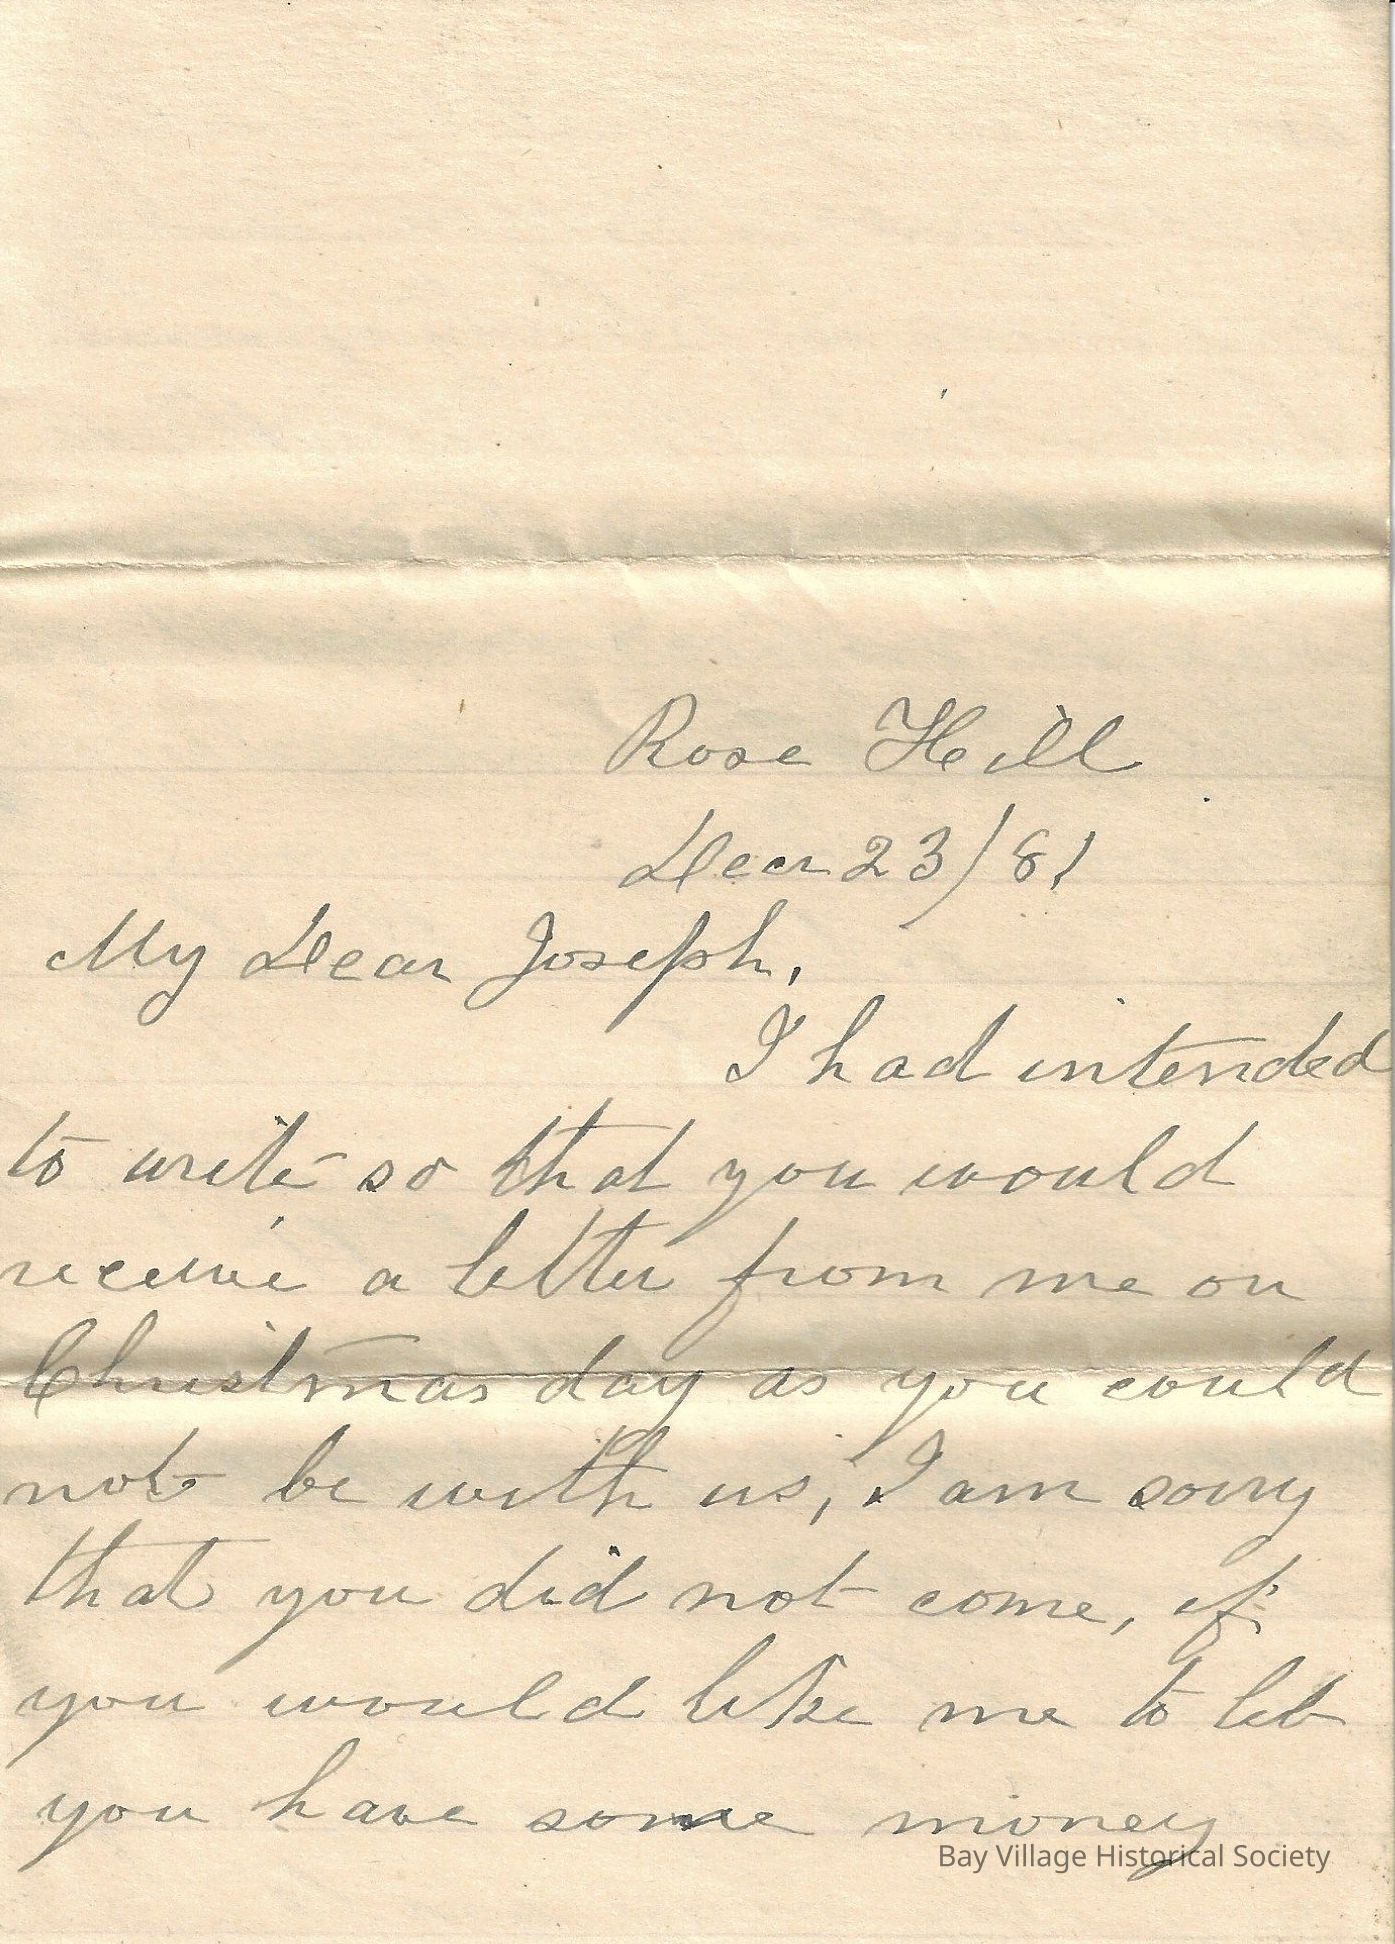 Rose Hill
Decr 23/81
My Dear Joseph,
I had intended
to write so that you would
receive a letter from me on
Christmas day as you could
not be with us, I am sorry
that you did not come, if
you would like me to let
you have some money
Bay Village Historical Society